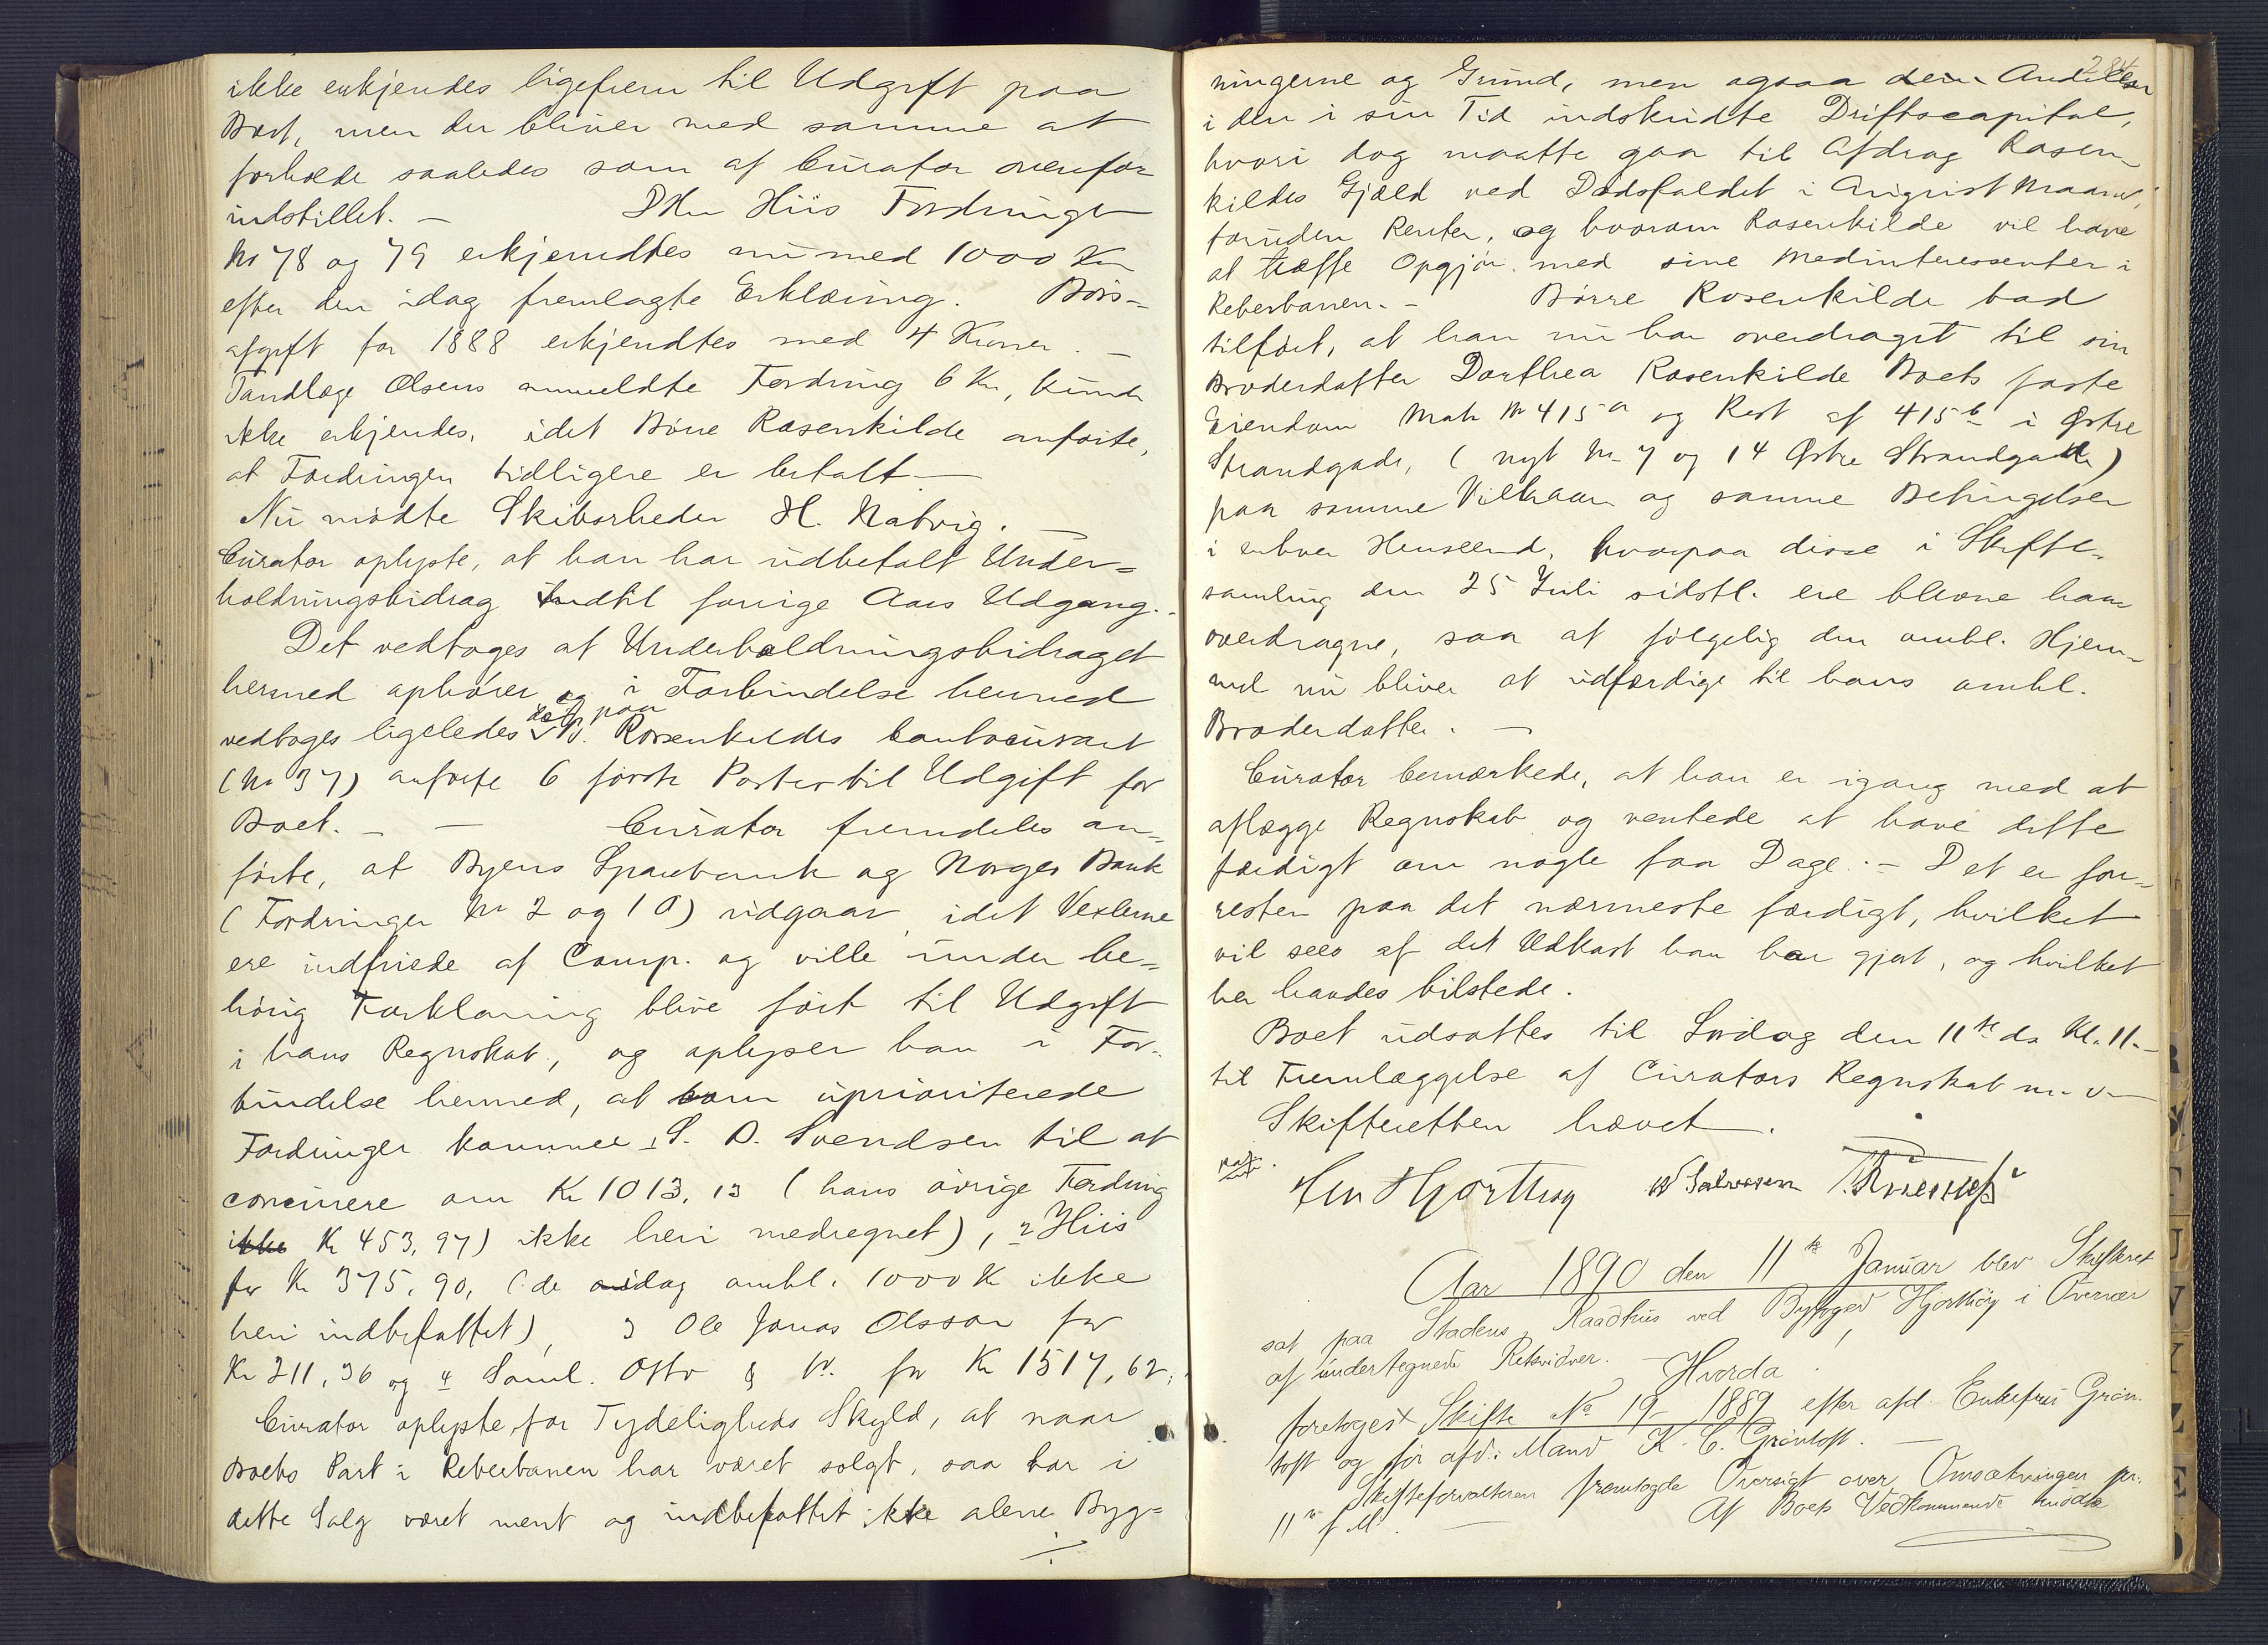 ikke erkjendes ligefrem til Udgift paa
Boet, men der bliver med samme at
forholde saaledes som af Curator ovenfor
indstillet. — Hiis Fordringer
No 78 og 79 erkjendtes nu med 1000 Kr
efter den idag fremlagte Erklæring. Börs-
afgift for 1888 erkjendtes med 4 Kroner. —
Tandlæge Olsens anmeldte Fordring 6 Kr, kunde
ikke erkjendes, idet Börre Rosenkilde anförte,
at Fordringen tidligere er betalt —
Nu mödte Skibsrheder H. Natvig. —
Curator oplyste, at han har udbetalt Under-
holdningsbidrag indtil forrige Aars Udgang. -
Det vedtoges at Underholdningsbidraget
hermed ophörer og i Forbindelse hermed
vedtoges ligeledes de paa Rosenkildes Contocurant
(No 37) anförte 6 förste Poster til Udgift for
Boet. — — Curator fremdeles an-
förte, at Byens Sparebank og Norges Bank
(Fordringer No 2 og 10) udgaar, idet Vexlerne
ere indfriede af Comp. og ville under be-
hörig Forklaring blive fört til Udgift
i hans Regnskab, og oplyser han i For-
bindelse hermed, at som uprioriterede
Fordringer kommer 1, S. D. Svendsen til at
concurrere om Kr 1013,13 (hans övrige Fordring
ikke Kr 453,97) ikke heri medregnet), 2 Hiis
for Kr 375,90, (de idag omhl. 1000 K ikke
heri indbefattet), 3 Ole Jonas Olsson for
Kr 211,36 og 4 Saml. Otto & for Kr 1517,62;
Curator oplyste, for Tydeligheds Skyld, at naar
Boets Part i Reberbanen har været solgt, saa har i
dette Salg været ment og indbefattet ikke alene Byg-
284
ningerne og Grund, men ogsaa den Andel
i den i sin Tid indskudte Driftscapital,
hvori dog maatte gaa til Afdrag Rosen-
kildes Gjæld ved Dödsfaldet i August Maaned,
foruden Renter, og hvorom Rosenkilde vil have
at træffe Opgjör med sine Medinteressenter i
Reberbanen. - Börre Rosenkilde bad
tilfört, at han nu har overdraget til sin
Broderdatter Dorthea Rosenkilde Boets faste
Eiendom Matr No 415a og Rest af 415b i Østre
Strandgade, (nyt No 7 og 14 Østre Strandgade)
paa samme Vilkaar og samme Betingelser
i enhver Henseende, hvorpaa disse i Skifte-
samling den 25 Juli sidstl. ere blevne ham
overdragne, saa at fölgelig den omhl. Hjem-
mel nu bliver at udfærdige til hans omhl.
Broderdatter. —
Curator bemærkede, at han er igang med at
aflægge Regnskab og ventede at have dette
færdigt om nogle faa Dage. - Det er for-
resten paa det nærmeste færdigt, hvilket
vil sees af det Udkast han har gjort, og hvilket
her havdes tilstede.
Boet udsattes til Lördag den 11te ds Kl. 11. —
til Fremlæggelse af Curators Regnskab m. v. —
Skifteretten hævet.
Hjorthøy Salvesen
Aar 1890 den 11te Januar blev Skifteret
sat paa Stadens Raadhus ved Byfoged Hjorthöy i Overvær
af undertegnede Retsvidner. — Hvorda
foretoges Skifte No 19 - 1889 efter afd. Enkefru Grön-
toft og för afd. Mand K. C. Gröntoft. —
Skifteforvalteren fremlagde Oversigt over Omsætningen pr.
11te f. M. — Af Boets Vedkommende mödte